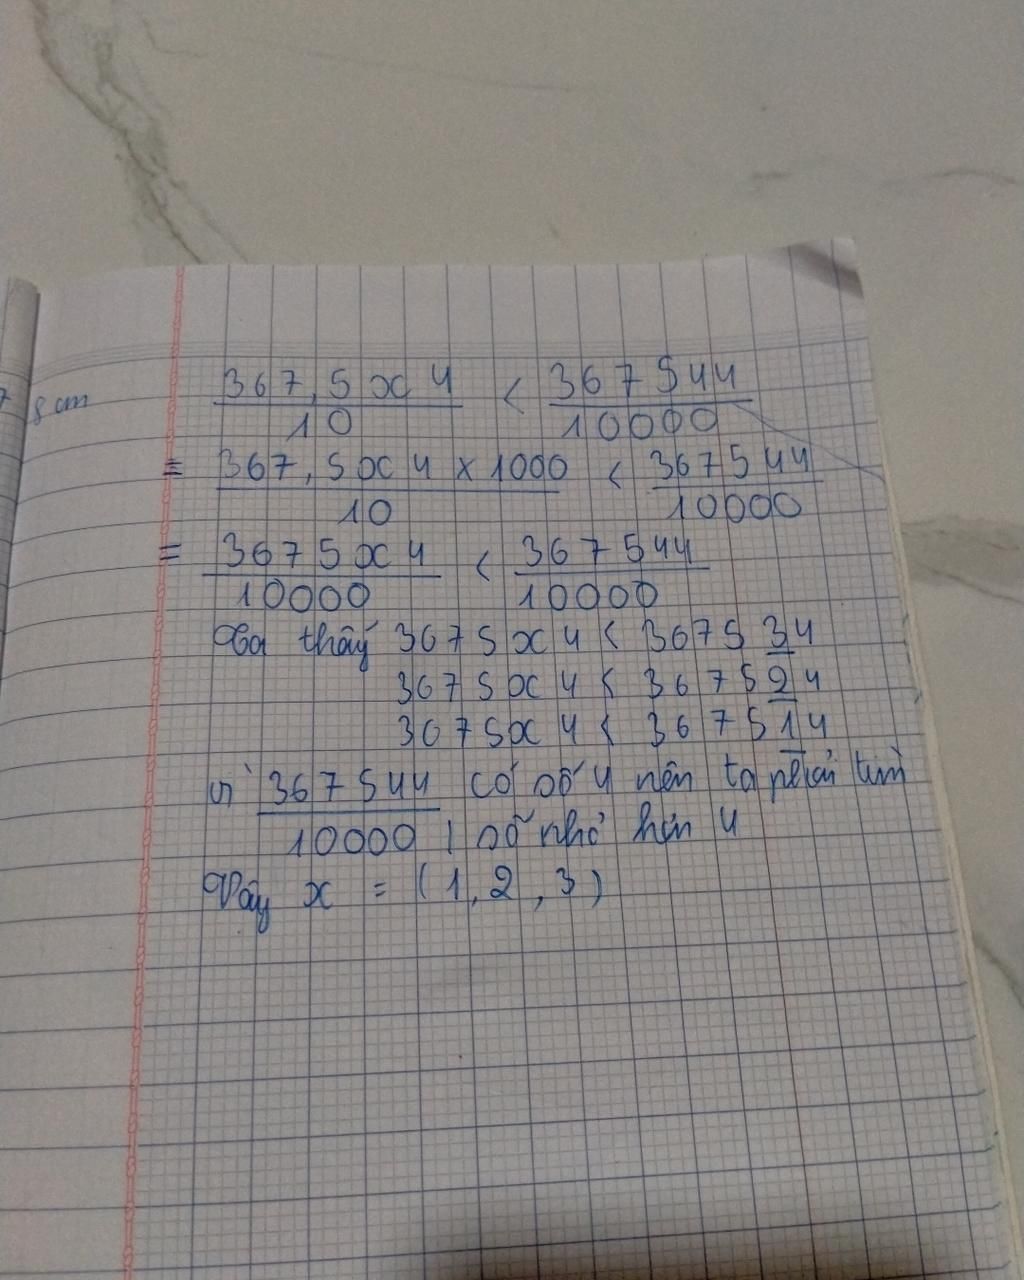 8 cm
367,5x4 / 10 < 367544 / 10000
= 367,5x4 x 1000 / 10 < 367544 / 10000
= 3675x4 / 10000 < 367544 / 10000
Ta thấy 3675x4 < 367534
3675x4 < 367524
3675x4 < 367514
vì 367544 / 10000 có số 4 nên ta phải tìm
1 số nhỏ hơn 4
Vậy x = (1, 2, 3)